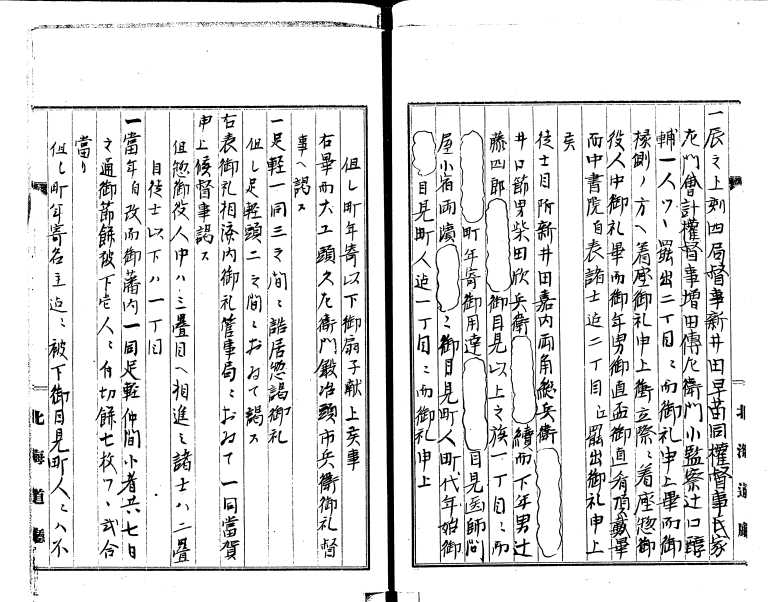 一辰之上刻四局督事新井田早苗同權督事氏家
左門會計權督事増田傳左衛門小監察辻口醇
輔一人ツヽ罷出二丁目ニ而御礼申上畢而御
椽側ノ方ヘ着座御礼申上衝立際ニ着座惣御
役人中御礼畢而御年男御直盃御直肴頂戴畢
而中書院自表諸士迄二丁目ニ罷出御礼申上
矣
徒士目所新井田嘉内両角総兵衛
井口節男柴田欣兵衛 續而下年男辻
藤四郎 御目見以上之族一丁目ニ而
町年寄御用達 目見医師問
屋小宿両濱 之御目見町人町代年始御
目見町人迄一丁目ニ而御礼申上
但し町年寄以下御扇子献上矣事
右畢而大工頭久左衛門鍛冶頭市兵衛御礼督
事ヘ謁ス
一足軽一同三之間ニ詰居惣謁御礼
但し足軽頭二之間ニおゐて謁ス
右表御礼相済内御礼管事局ニおゐて一同當賀
申上候督事謁ス
但惣御役人中ハ三疊目ヘ相進ミ諸士ハ二疊
目徒士以下ハ一丁目
一當年自改而御藩内一同足軽仲間小者共七日
之通御節餘被下壱人ニ付切餘七枚ツヽ弐合
當り
但し町年寄名主迄ニ被下御目見町人ニハ不
北海道廳
北海道廳